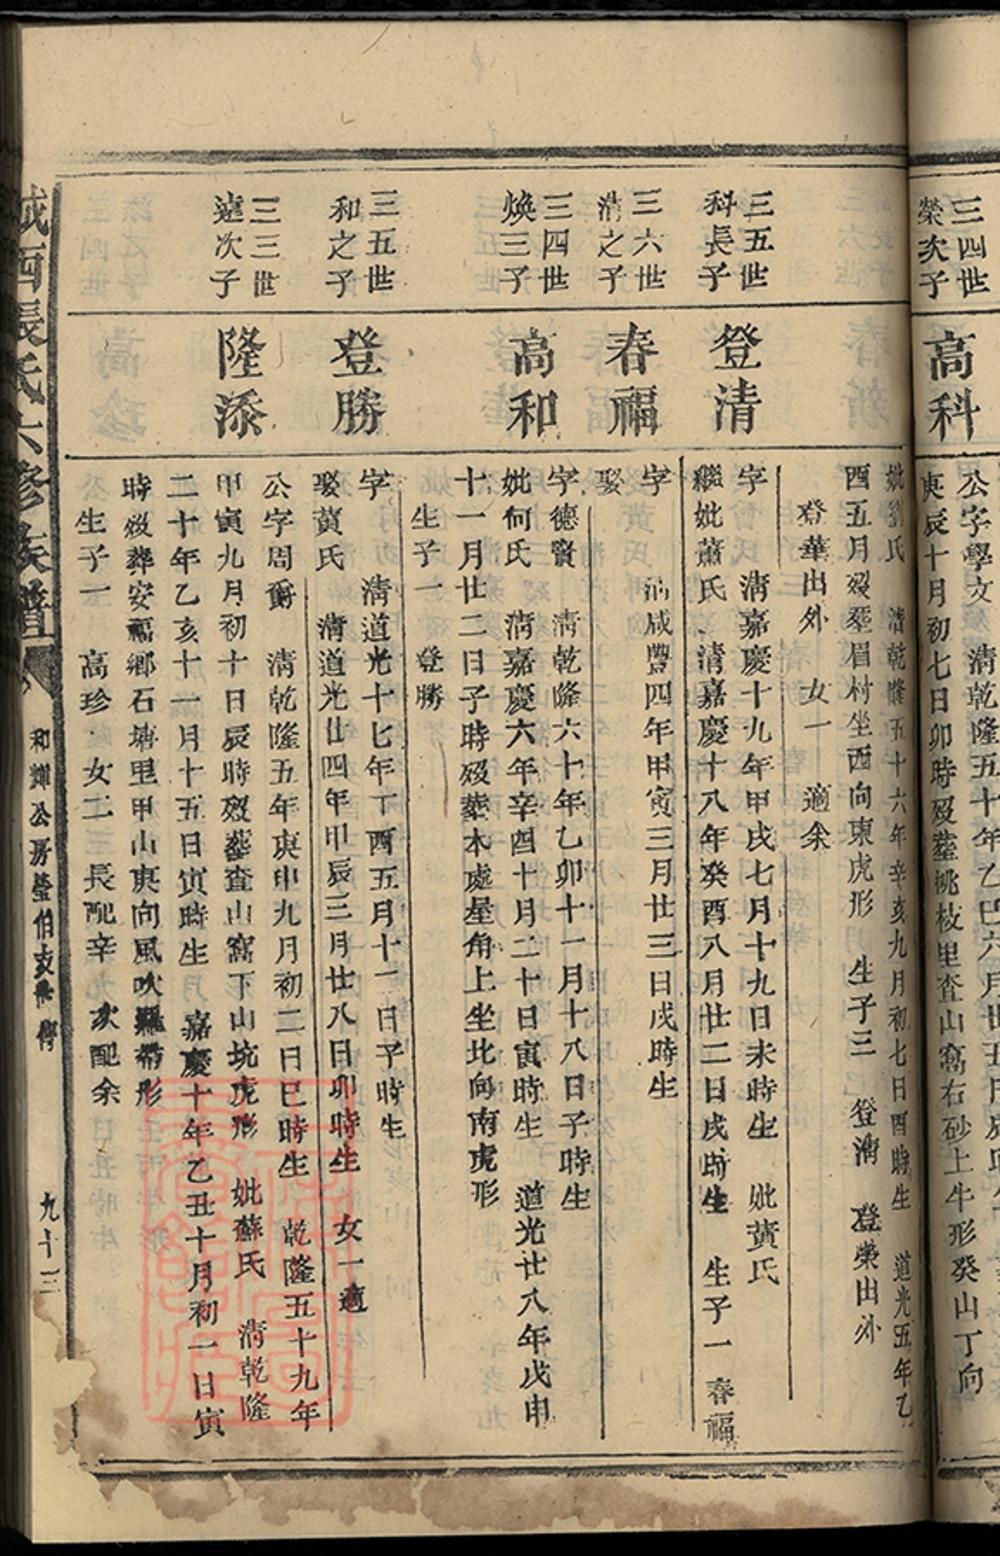 三四世
榮次子
高科
公字學文 清乾隆五十年乙巳六月
庚辰十月初七日卯時歿葬桃枝里查山窩右砂上牛形癸山丁向
妣劉氏 清乾隆五十六年辛亥九月初七日酉時生 道光五年乙
酉五月歿葬眉村坐西向東虎形 生子三 登清 登榮出外
登華出外 女一 適余
三五世
科長子
登清
字 清嘉慶十九年甲戌七月十九日未時生 妣黃氏
繼妣蕭氏 清嘉慶十八年癸酉八月廿二日戌時生 生子一 春福
三六世
清之子
春福
字 清咸豐四年甲寅三月廿三日戌時生
娶
三四世
煥三子
高和
字德賢 清乾隆六十年乙卯十一月十八日子時生
妣何氏 清嘉慶六年辛酉十月二十日寅時生 道光廿八年戊申
十一月廿二日子時歿葬本處屋角上坐北向南虎形
生子一 登勝
三五世
和之子
登勝
字 清道光十七年丁酉五月十一日子時生
娶黃氏 清道光廿四年甲辰三月廿八日卯時生 女一適
三三世
遠次子
隆添
公字周爵 清乾隆五年庚申九月初二日巳時生 乾隆五十九年
甲寅九月初十日辰時歿葬查山窩下山坑虎形 妣蘇氏 清乾隆
二十年乙亥十一月十五日寅時生 嘉慶十年乙丑十月初一日寅
時歿葬安福鄉石塘里甲山庚向風吹羅帶形
生子一 高珍 女二 長配辛 次配余
城西張氏六修族譜
和輝公房瑩伯支 傳
九十三